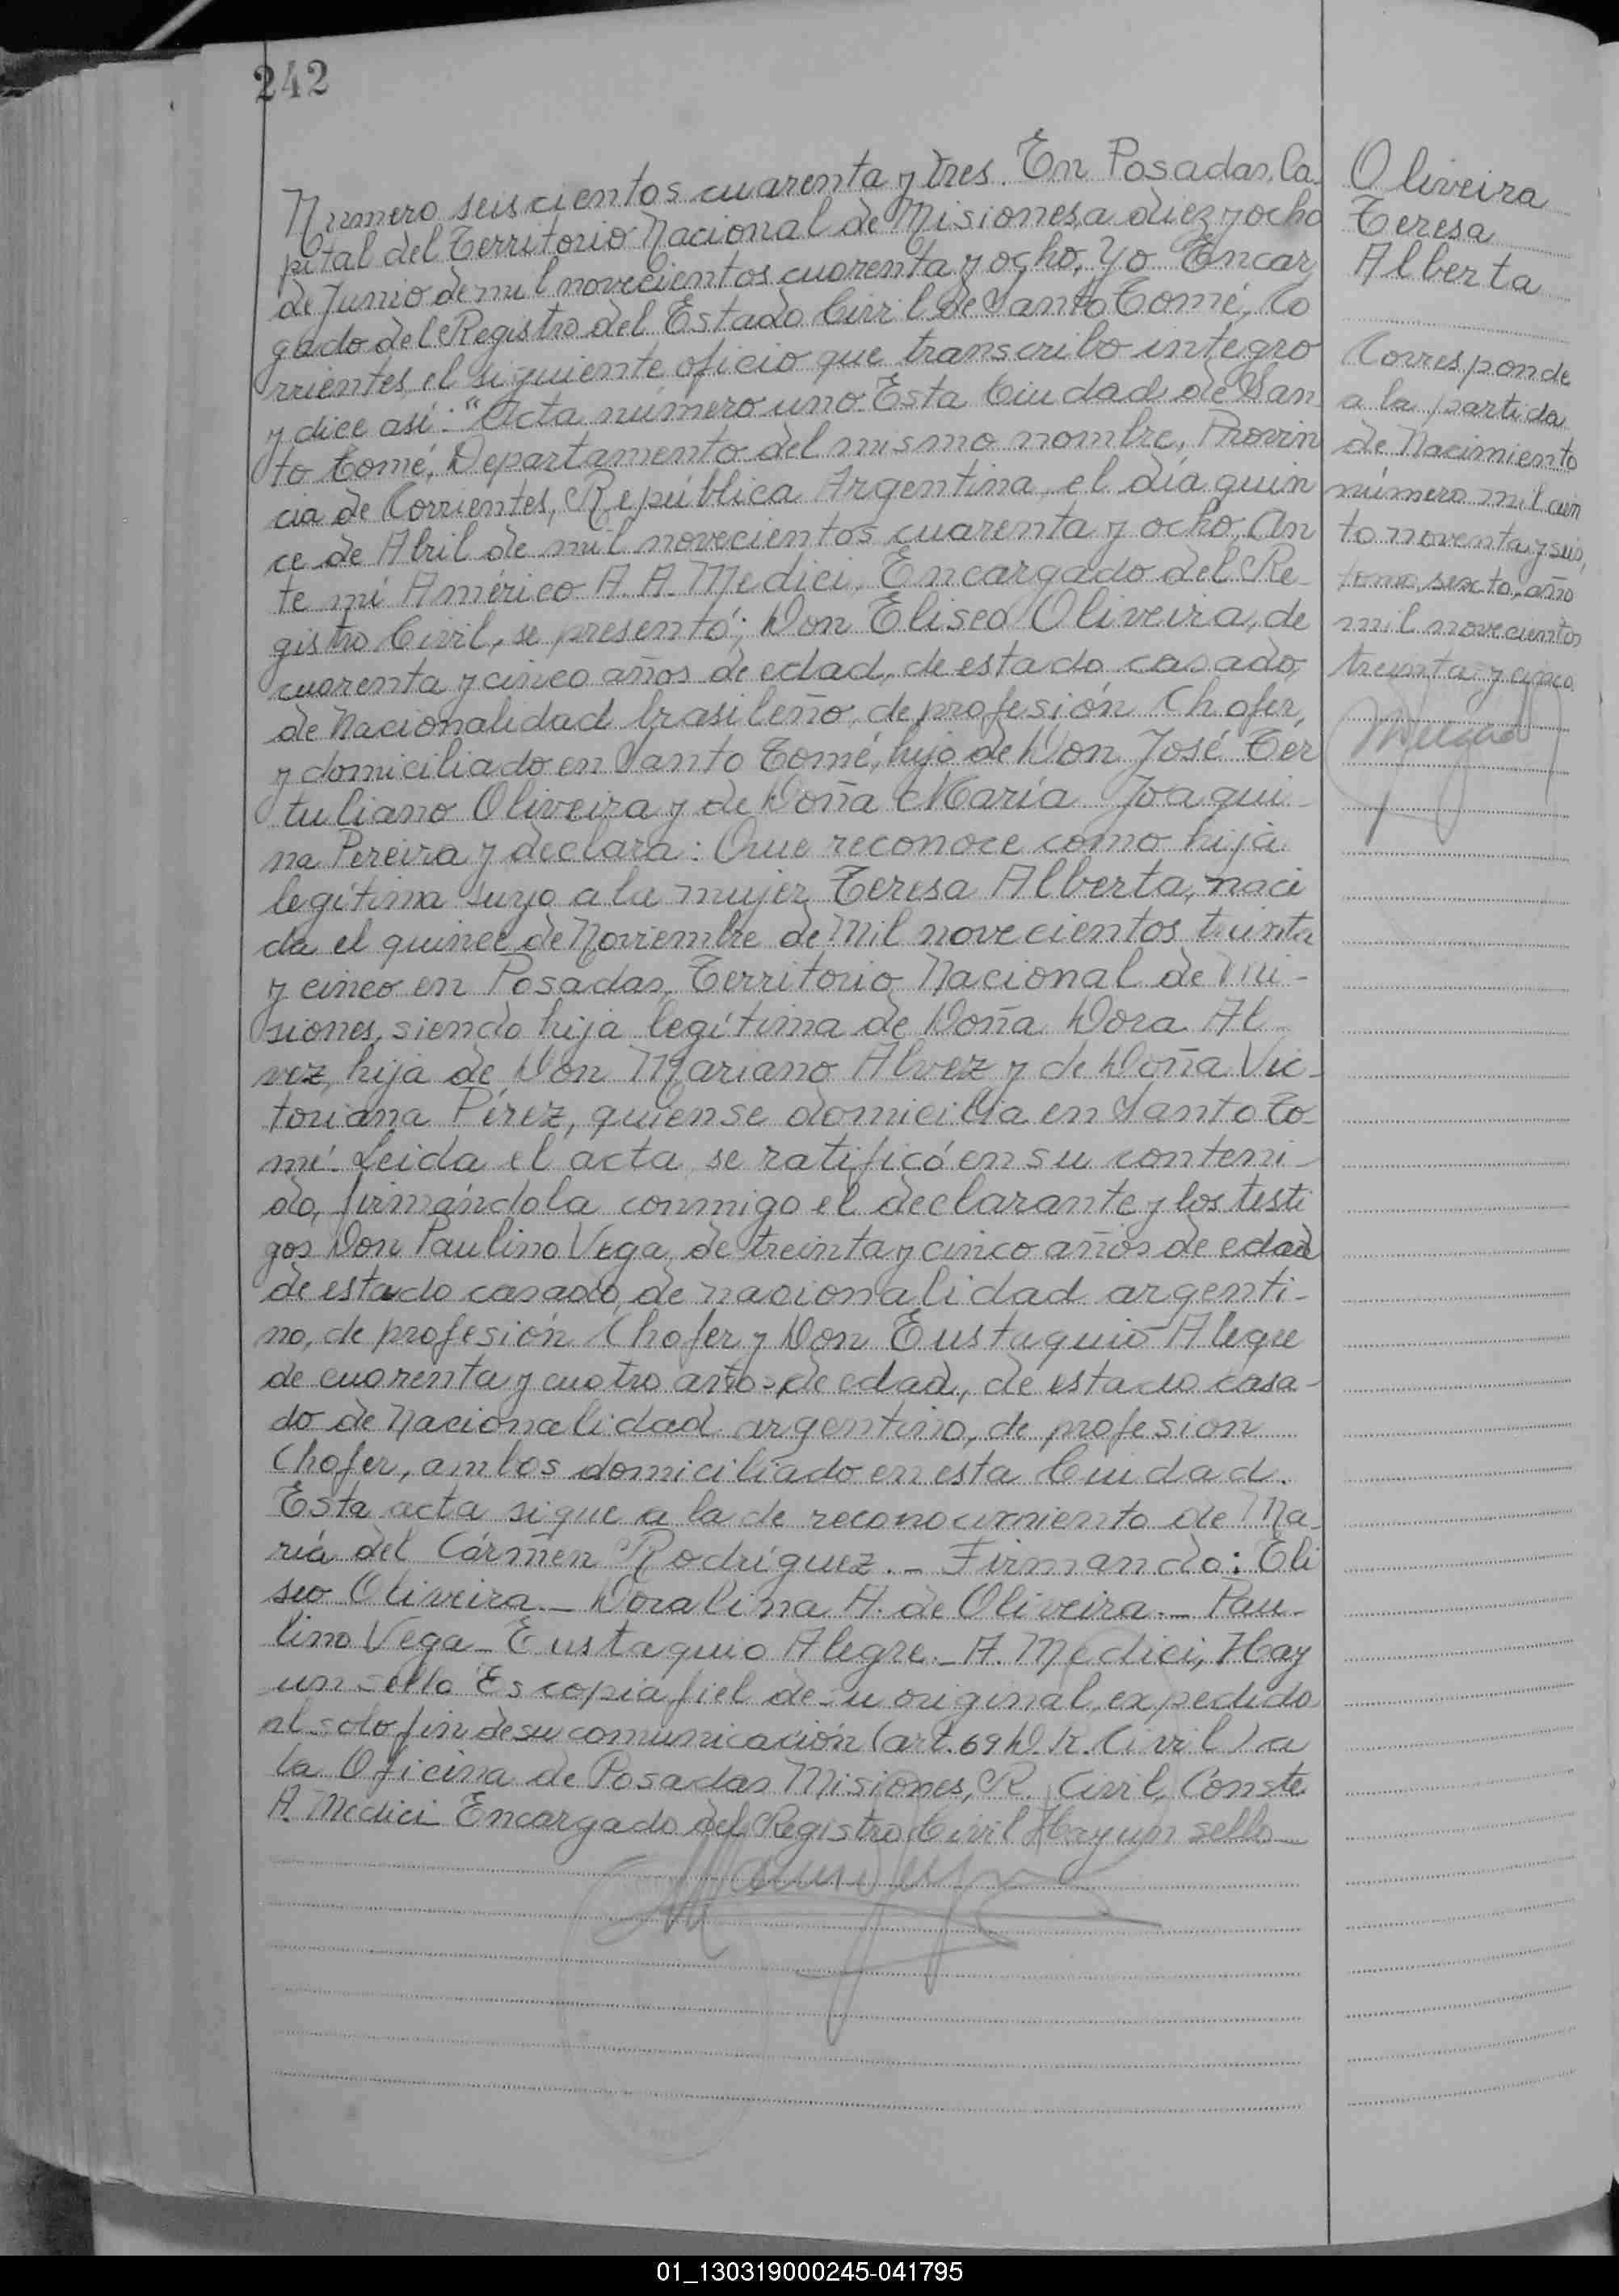 242
Numero seiscientos cuarenta y tres. En Posadas, Ca-
pital del Territorio Nacional de Misiones, a diez y ocho
de Junio de mil novecientos cuarenta y ocho, Yo Encar
gado del Registro del Estado Civil de Santo Tomé, Co
rrientes, el siguiente oficio que transcribo integro
y dice así: "Acta número uno. Esta Ciudad de San
to Tomé, Departamento del mismo nombre, Provin
cia de Corrientes, República Argentina, el día quin
ce de Abril de mil novecientos cuarenta y ocho, An
te mí Américo A. A. Medici, Encargado del Re-
gistro Civil, se presentó; Don Eliseo Oliveira, de
cuarenta y cinco años de edad, de estado casado,
de Nacionalidad brasileño, de profesión Chofer,
y domiciliado en Santo Tomé, hijo de Don José Ter
tuliano Oliveira y de Doña María Joaqui-
na Pereira y declara: Que reconoce como hija
legítima suyo a la mujer Teresa Alberta, naci
da el quince de Noviembre de Mil novecientos treinta
y cinco en Posadas, Territorio Nacional de Mi-
siones, siendo hija legítima de Doña Dora Al-
vez, hija de Don Mariano Alvez y de Doña Vic-
toriana Pérez, quien se domicilia en Santo To-
mé. Leida el acta se ratificó en su conteni-
do, firmándola conmigo el declarante y los testi
gos Don Paulino Vega, de treinta y cinco años de edad
de estado casado, de nacionalidad argenti-
no, de profesión Chofer y Don Eustaquio Alegre
de cuarenta y cuatro años de edad, de estado casa-
do de Nacionalidad argentino, de profesion
Chofer, ambos domiciliado en esta Ciudad.
Esta acta sigue a la de reconocimiento de Ma-
ría del Cármen Rodríguez.- Firmando: Eli
seo Oliveira.- Doralina A. de Oliveira.- Pau-
lino Vega- Eustaquio Alegre.- A. Medici, Hay
un sello Es copia fiel de su original, expedido
al solo fin de su comunicación (art. 69 D. R. Civil) a
la Oficina de Posadas Misiones, R. Civil, Conste
A. Medici Encargado del Registro Civil Hay un sello
Oliveira
Teresa
Alberta
Corresponde
a la partida
de Nacimiento
número mil cien
to noventa y seis,
tomo sexto, año
mil novecientos
treinta y cinco.
01_130319000245-041795